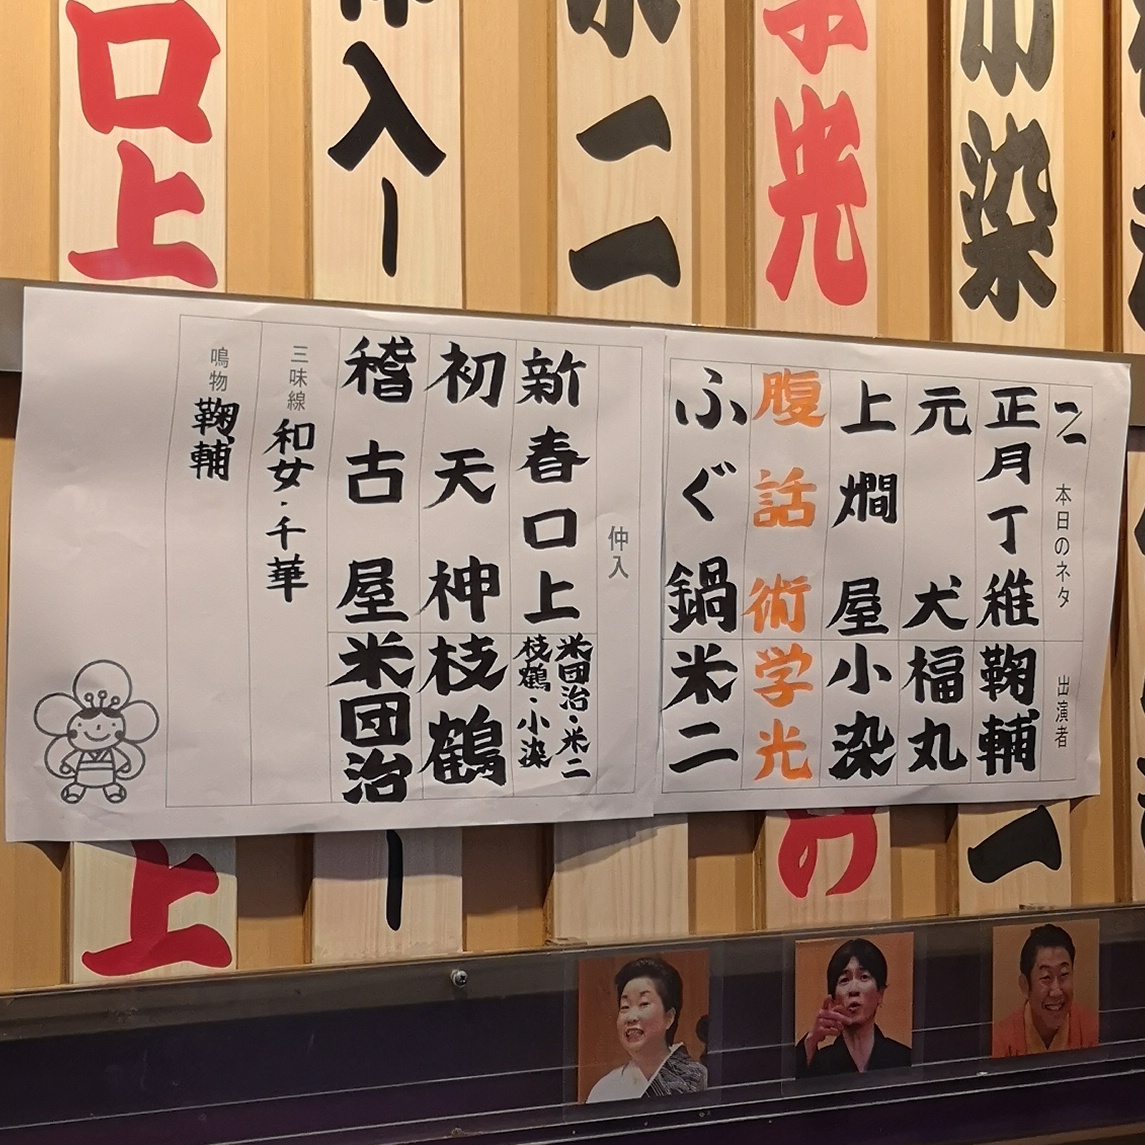 口上
入
二
光
染
ニ
本日のネタ 出演者
正月丁稚 鞠輔
元犬 福丸
上燗屋 小染
腹話術 学光
ふぐ鍋 米二
仲入
新春口上 米団治・米二
枝鶴・小染
初天神 枝鶴
稽古屋 米団治
三味線 和女・千華
鳴物 鞠輔
上
の
一